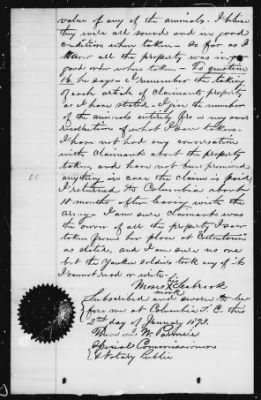 value of any of the animals. I believe
they were all sound and in good
condition when taken - So far as I
know all the property was in
good order when taken - To question
he says - I remember the taking
of each article of claimants property
as I have stated - I give the number
of the animals entirely from my own
recollection of what I saw taken.
I have not had any conversation
with claimant about the property
taken, and have not been promised
anything in case the claim is paid.
I returned to Columbia about
18 months after leaving with the
army - I am sure claimant was
the owner of all the property I saw
taken from her place at
as stated, and I am sure no one
but the Yankee soldiers took any of it
I cannot read or write.
his
Moses X Seabrook
mark
Subscribed and sworn to be-
fore me at Columbia S.C. this
2nd day of January 1873.
Special Commissioner
& Notary Public